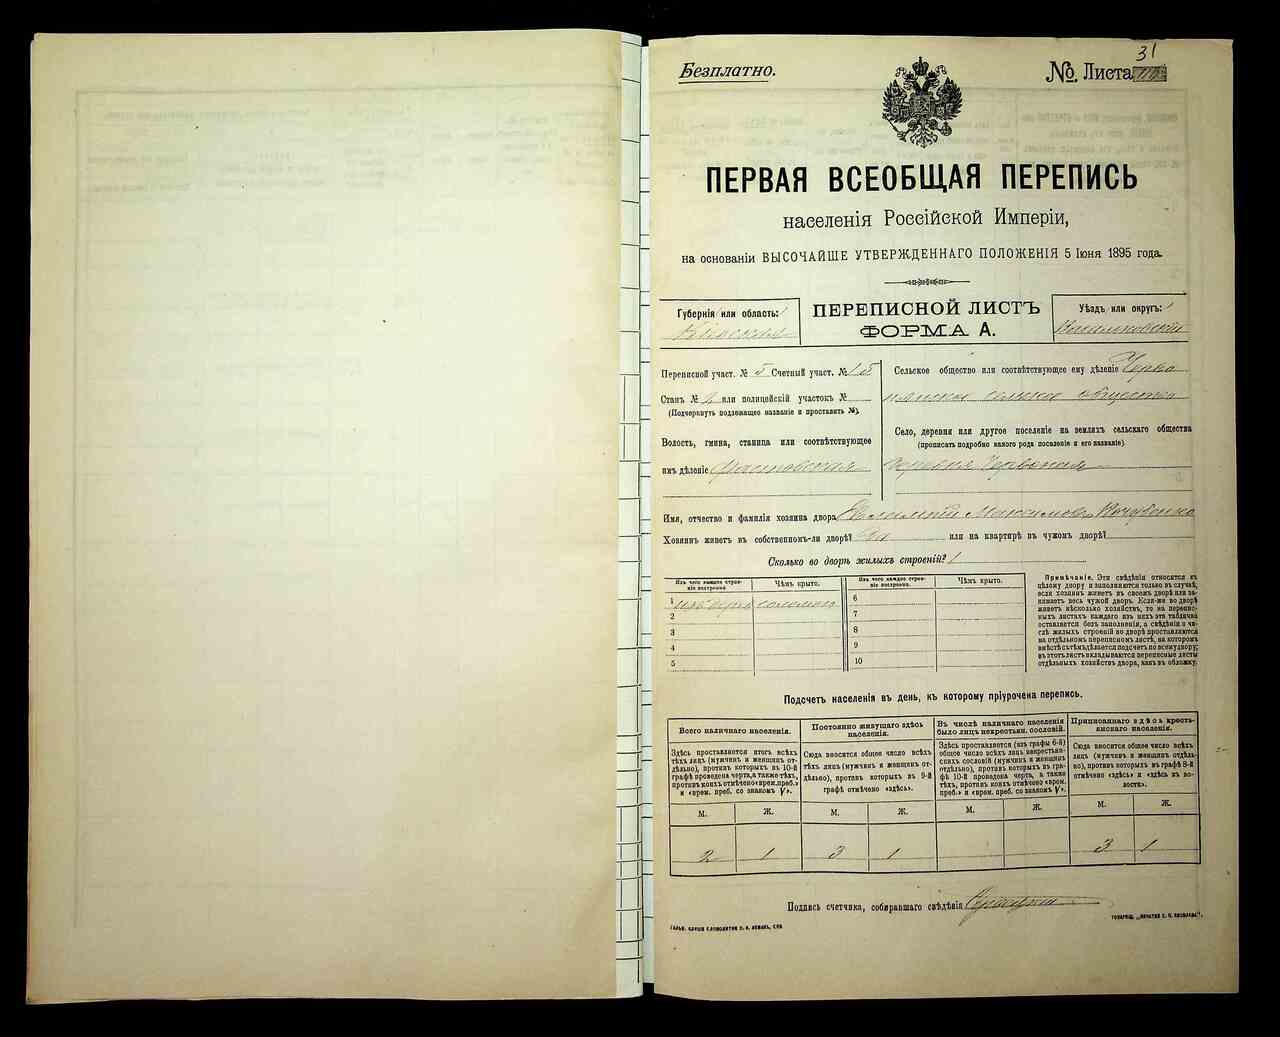 31
Безплатно.
№ Листа
ПЕРВАЯ ВСЕОБЩАЯ ПЕРЕПИСЬ
населенія Россійской Имперіи,
на основаніи ВЫСОЧАЙШЕ УТВЕРЖДЕННАГО ПОЛОЖЕНІЯ 5 Іюня 1895 года.
Губернія или область:
Кіевская
ПЕРЕПИСНОЙ ЛИСТЪ
ФОРМА А.
Уѣздъ или округъ:
Васильковскій
Переписной участ. № 5 Счетный участ. № 15
Станъ № 2 или полицейскій участокъ №
(Подчеркнуть подлежащее названіе и проставить №).
Волость, гмина, станица или соотвѣтствующее
имъ дѣленіе Фастовская
Сельское общество или соотвѣтствующее ему дѣленіе Черво
Село, деревня или другое поселеніе на земляхъ сельскаго общества
(прописать подробно какого рода поселеніе и его названіе).
деревня Червоная
Имя, отчество и фамилія хозяина двора Максимовъ
Хозяинъ живетъ въ собственномъ-ли дворѣ? да или на квартирѣ въ чужомъ дворѣ?
Сколько во дворѣ жилыхъ строеній? 1
Изъ чего каждое строе-
ніе построено.
Чѣмъ крыто.
1 изъ дерева соломою
2
3
4
5
Изъ чего каждое строе-
ніе построено.
Чѣмъ крыто.
6
7
8
9
10
Примѣчаніе. Эти свѣдѣнія относятся къ
цѣлому двору и заполняются только въ случаѣ,
если хозяинъ живетъ въ своемъ дворѣ или за-
нимаетъ весь чужой дворъ. Если-же во дворѣ
живетъ нѣсколько хозяйствъ, то на перепис-
ныхъ листахъ каждаго изъ нихъ эта табличка
оставляется безъ заполненія, а свѣдѣнія о чи-
слѣ жилыхъ строеній во дворѣ проставляются
на отдѣльномъ переписномъ листѣ, на которомъ
вмѣстѣ съ тѣмъ дѣлается подсчетъ по всему двору;
въ этотъ листъ вкладываются переписные листы
отдѣльныхъ хозяйствъ двора, какъ въ обложку.
Подсчетъ населенія въ день, къ которому пріурочена перепись.
Всего наличнаго населенія.
Здѣсь проставляется итогъ всѣхъ
тѣхъ лицъ (мужчинъ и женщинъ от-
дѣльно), противъ которыхъ въ 10-й
графѣ проведена черта, а также тѣхъ,
противъ коихъ отмѣчено «врем. преб.»
и «врем. преб. со знакомъ V».
М. Ж.
2 1
Постоянно живущаго здѣсь
населенія.
Сюда вносится общее число всѣхъ
тѣхъ лицъ (мужчинъ и женщинъ от-
дѣльно), противъ которыхъ въ 9-й
графѣ отмѣчено «здѣсь».
М. Ж.
3 1
Въ числѣ наличнаго населенія
было лицъ некрестьян. сословій.
Здѣсь проставляется (изъ графы 6-й)
общее число всѣхъ лицъ некрестьян-
скихъ сословій (мужчинъ и женщинъ
отдѣльно), противъ которыхъ въ
графѣ 10-й проведена черта, а также
тѣхъ, противъ коихъ отмѣчено «врем.
преб.» и «врем. преб. со знакомъ V».
М. Ж.
Приписаннаго здѣсь кресть-
янскаго населенія.
Сюда вносится общее число всѣхъ
лицъ (мужчинъ и женщинъ отдѣль-
но), противъ которыхъ въ графѣ 8-й
отмѣчено «здѣсь» и «здѣсь въ во-
лости».
М. Ж.
3 1
Подпись счетчика, собиравшаго свѣдѣнія